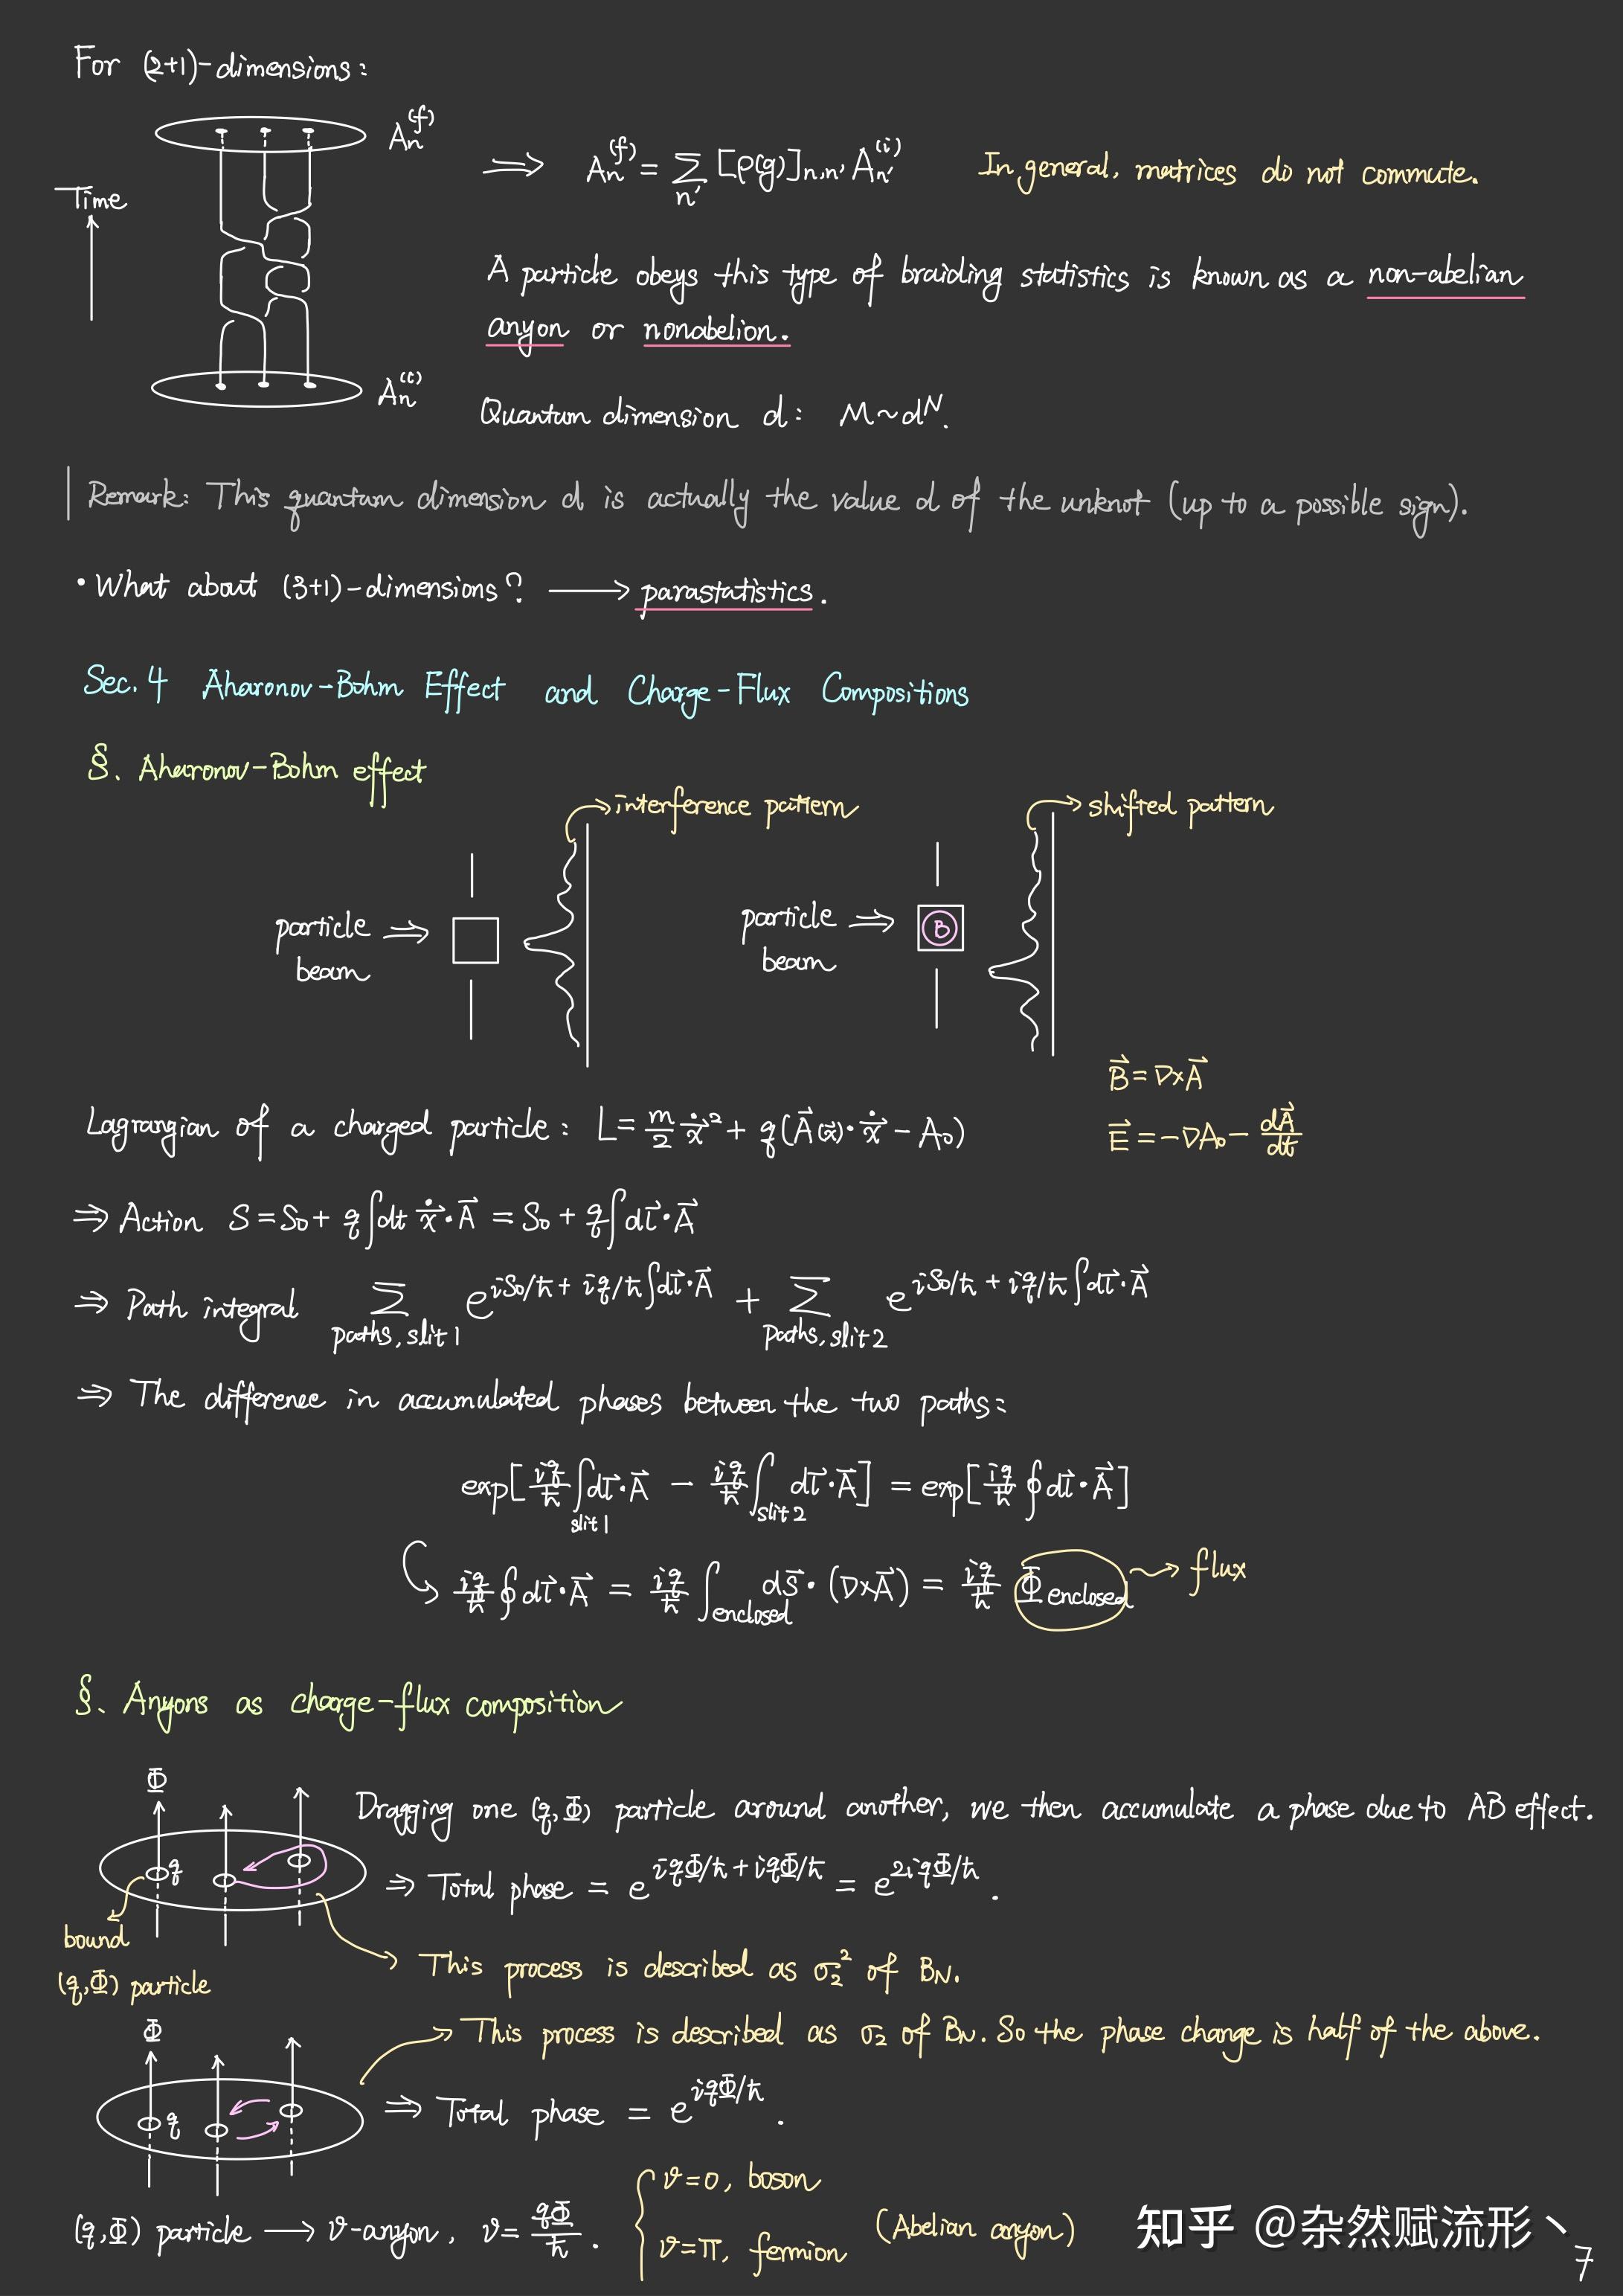 For (2+1)-dimensions:
Aₙ^(f)
Time
Aₙ^(i)
⟹ Aₙ^(f) = Σ_{n'} [ρ(g)]_{n,n'} A_{n'}^(i) In general, matrices do not commute.
A particle obeys this type of braiding statistics is known as a non-abelian
anyon or nonabelion.
Quantum dimension d: M~d^N.
Remark: This quantum dimension d is actually the value d of the unknot (up to a possible sign).
• What about (3+1)-dimensions? ⟶ parastatistics.
Sec. 4 Aharonov-Bohm Effect and Charge-Flux Compositions
§. Aharonov-Bohm effect
interference pattern
shifted pattern
particle ⇒
beam
particle ⇒
beam
B
Lagrangian of a charged particle: L = m/2 ẋ⃗² + q(A⃗(x⃗)·ẋ⃗ - A₀)
B⃗ = ∇×A⃗
E⃗ = -∇A₀ - dA⃗/dt
⇒ Action S = S₀ + q∫dt ẋ⃗·A⃗ = S₀ + q∫dl⃗·A⃗
⇒ Path integral Σ_{paths, slit 1} e^{iS₀/ħ + iq/ħ∫dl⃗·A⃗} + Σ_{paths, slit 2} e^{iS₀/ħ + iq/ħ∫dl⃗·A⃗}
⇒ The difference in accumulated phases between the two paths:
exp[iq/ħ ∫_{slit 1} dl⃗·A⃗ - iq/ħ ∫_{slit 2} dl⃗·A⃗] = exp[iq/ħ ∮dl⃗·A⃗]
iq/ħ ∮dl⃗·A⃗ = iq/ħ ∫_{enclosed} ds⃗·(∇×A⃗) = iq/ħ Φ_{enclosed} → flux
§. Anyons as charge-flux composition
Φ
q
bound
(q,Φ) particle
Dragging one (q,Φ) particle around another, we then accumulate a phase due to AB effect.
⇒ Total phase = e^{iqΦ/ħ + iqΦ/ħ} = e^{2iqΦ/ħ}.
This process is described as σ₂² of B_N.
This process is described as σ₂ of B_N. So the phase change is half of the above.
Φ
q
⇒ Total phase = e^{iqΦ/ħ}.
(q,Φ) particle ⟶ ϑ-anyon, ϑ = qΦ/ħ.
{ ϑ=0, boson
ϑ=π, fermion
(Abelian anyon)
知乎 @杂然赋流形丶
7